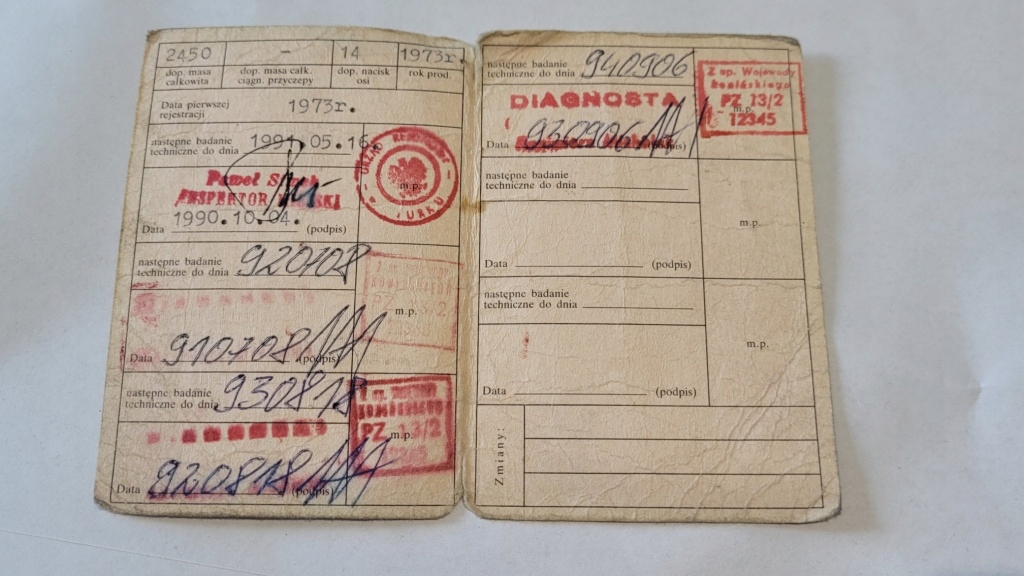 2450 – 14 1973r.
dop. masa całkowita
dop. masa całk. ciągn. przyczepy
dop. nacisk osi
rok prod.
Data pierwszej rejestracji 1973r.
następne badanie
techniczne do dnia 1991.05.16.
URZĄD REJONOWY W TURKU
m.p.
Paweł
INSPEKTOR
Data 1990.10.04. (podpis)
następne badanie
techniczne do dnia 920708
PZ 13/2
m.p.
Data 910708 (podpis)
następne badanie
techniczne do dnia 930818
PZ 13/2
m.p.
Data 920818 (podpis)
następne badanie
techniczne do dnia 940906
Z up. Wojewody
konińskiego
PZ 13/2
m.p.
12345
DIAGNOSTA
Data 930906 (podpis)
następne badanie
techniczne do dnia
m.p.
Data (podpis)
następne badanie
techniczne do dnia
m.p.
Data (podpis)
Zmiany: